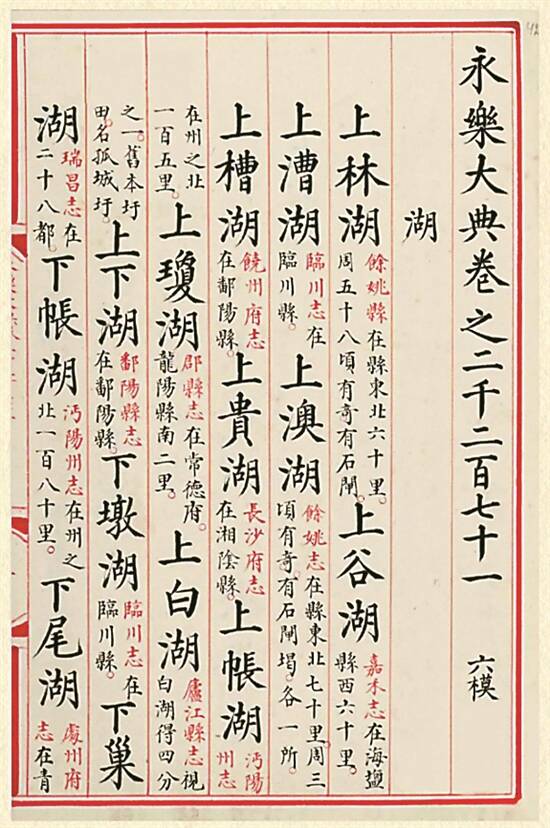 永樂大典卷之二千二百七十一 六模
湖
上林湖餘姚縣在縣東北六十里。周五十八頃有奇有石閘。上谷湖嘉禾志在海鹽縣西六十里。
上漕湖臨川志在臨川縣。上澳湖餘姚志在縣東北七十里。周三頃有奇。有石閘堨。各一所
上槽湖饒州府志在鄱陽縣。上貴湖長沙府志在湘陰縣。上帳湖沔陽州志
在州之北一百五里。上瓊湖郡縣志在常德府。龍陽縣南二里。上白湖廬江縣志視白湖得四分
之一。舊本圩田名孤城圩。上下湖鄱陽縣志在鄱陽縣。下墩湖臨川志在臨川縣。下巢
湖瑞昌志在二十八都。下帳湖沔陽州志在州之北一百八十里。下尾湖處州府志在青